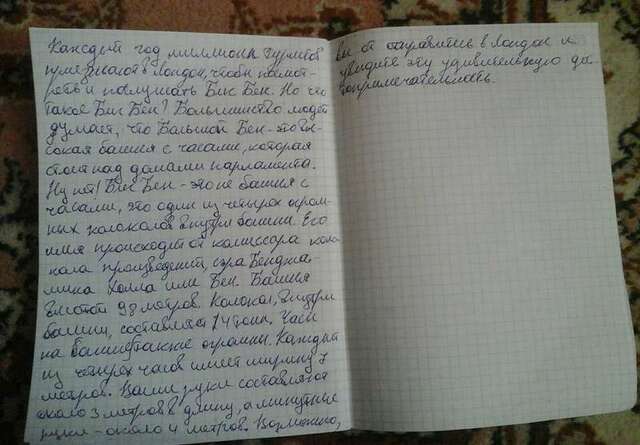 Каждый год миллионы туристов
приезжают в Лондон, чтобы посмот-
реть и послушать Биг Бен. Но что
такое Биг Бен? Большинство людей
думает, что Большой Бен - это вы-
сокая башня с часами, которая
стоит над домами парламента.
Ну нет! Биг Бен - это не башня с
часами, это один из четырех огром-
ных колоколов внутри башни. Его
имя происходит от комиссора
произведений, сэра Бенджа-
мина Холла или Бен. Башня
высотой 98 метров. Колокол, внутри
башни, составляет 14 тонн. Часы
на башне также огромны. Каждый
из четырех часов имеет ширину 7
метров. Ваши руки составляют
около 3 метров в длину, а минутные
руки - около 4 метров. Возможно,
вы отправитесь в Лондон и
увидите эту удивительную до
топримечательность.